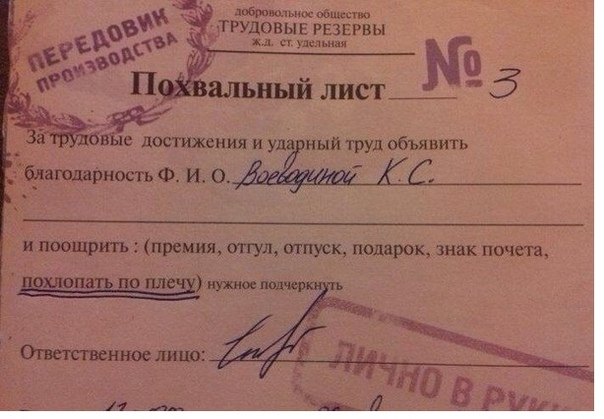 добровольное общество
ТРУДОВЫЕ РЕЗЕРВЫ
ж.д. ст. удельная
ПЕРЕДОВИК
ПРОИЗВОДСТВА
№ 3
Похвальный лист
За трудовые достижения и ударный труд объявить
благодарность Ф. И. О. Воеводиной К. С.
и поощрить : (премия, отгул, отпуск, подарок, знак почета,
похлопать по плечу) нужное подчеркнуть
Ответственное лицо:
ЛИЧНО В РУКИ